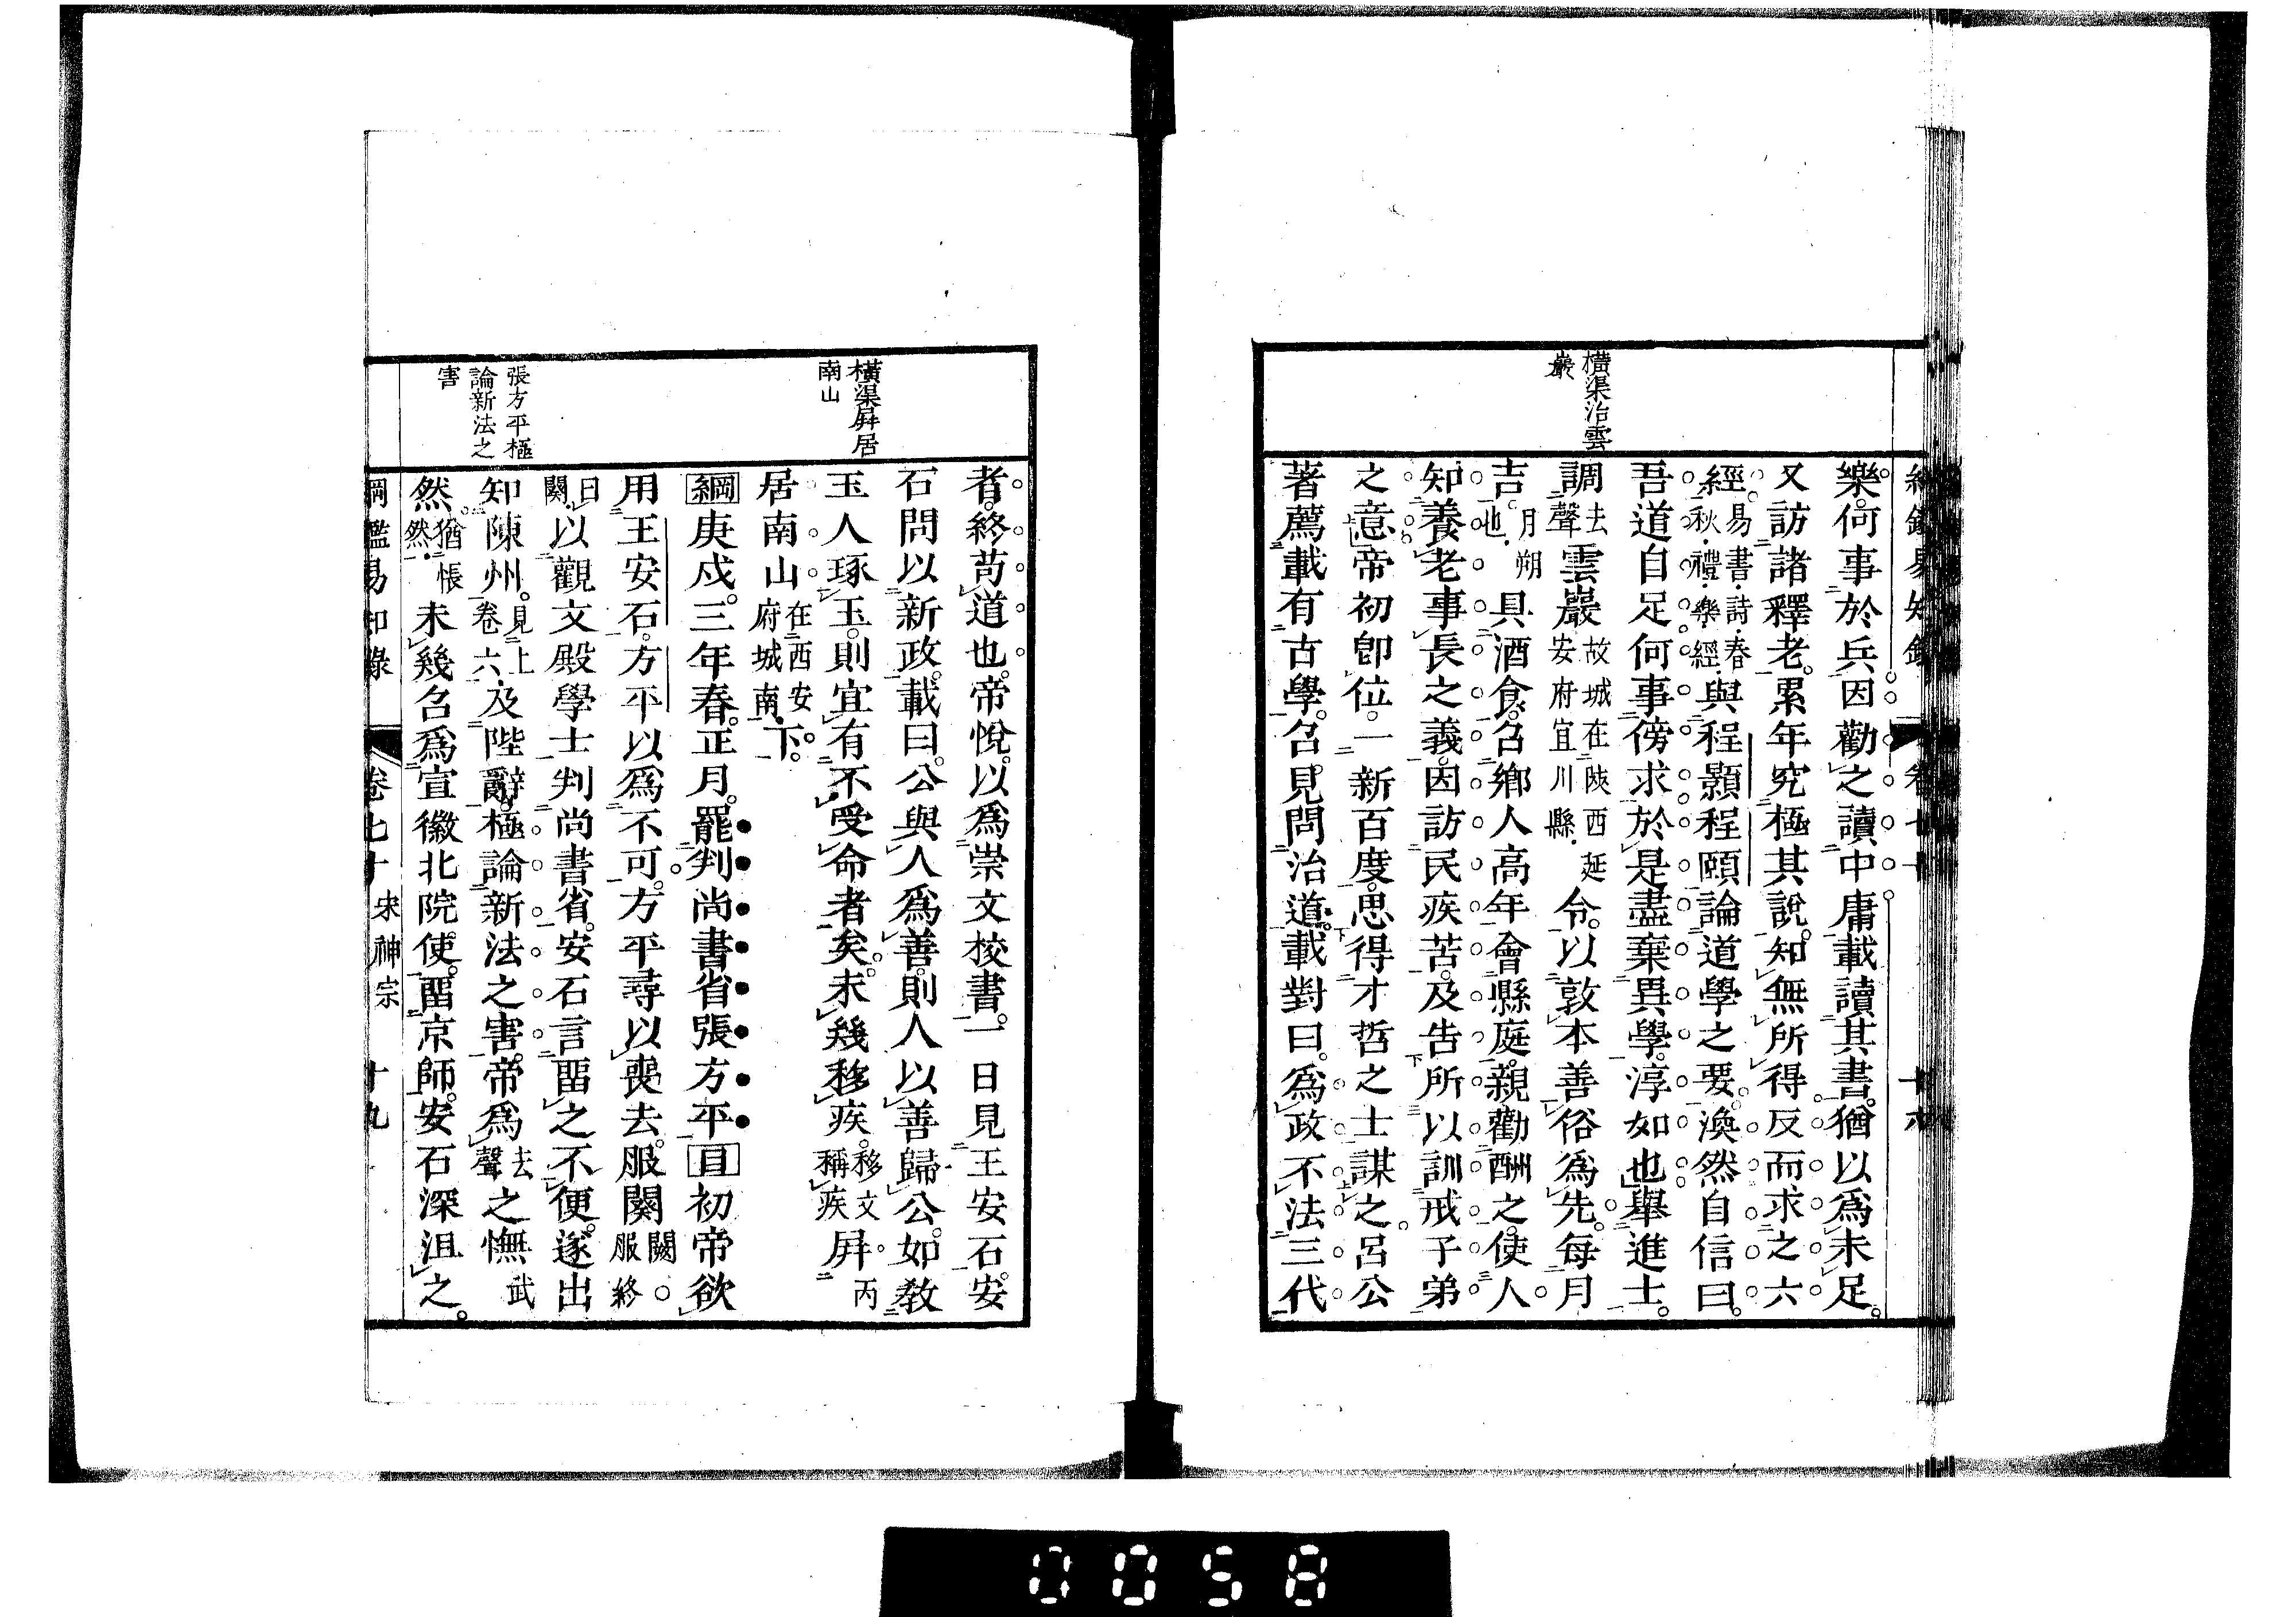 橫渠治雲
巖
樂。何事於兵因勸之讀中庸載讀其書。猶以爲未足。
又訪諸釋老。累年究極其說。知無所得。反而求之六
經。易書・詩・春秋・禮・樂經・與程顥程頤論道學之要。渙然自信曰。
吾道自足。何事傍求。於是盡棄異學。淳如也。舉進士。
調去聲雲巖故城在陝西延安府宜川縣・令。以敦本善俗爲先。每月
吉。月朔也・具酒食。召鄉人高年會縣庭。親勸酬之。使人
知養老事長之義。因訪民疾苦。及告所以訓戒子弟
之意。帝初卽位。一新百度。思得才哲之士謀之。呂公
著薦載有古學。召見問治道。載對曰。爲政不法三代
橫渠屛居
南山
張方平極
論新法之
害
者。終苟道也。帝悅。以爲崇文校書。一日見王安石。安
石問以新政。載曰。公與人爲善。則人以善歸公。如敎
玉人琢玉。則宜有不受命者矣。未幾移疾。移文稱疾屛丙
居南山在西安府城南・下。
綱庚戌。三年春。正月。罷判尚書省張方平目初帝欲
用王安石。方平以爲不可。方平尋以喪去。服闋闋服終
曰闋・以觀文殿學士判尚書省。安石言畱之不便。遂出
知陳州。見上卷六・及陛辭。極論新法之害。帝爲去聲之憮武
然。猶悵然・未幾召爲宣徽北院使。畱京師。安石深沮之。
綱鑑易知錄 卷七十 宋神宗 十九
0058